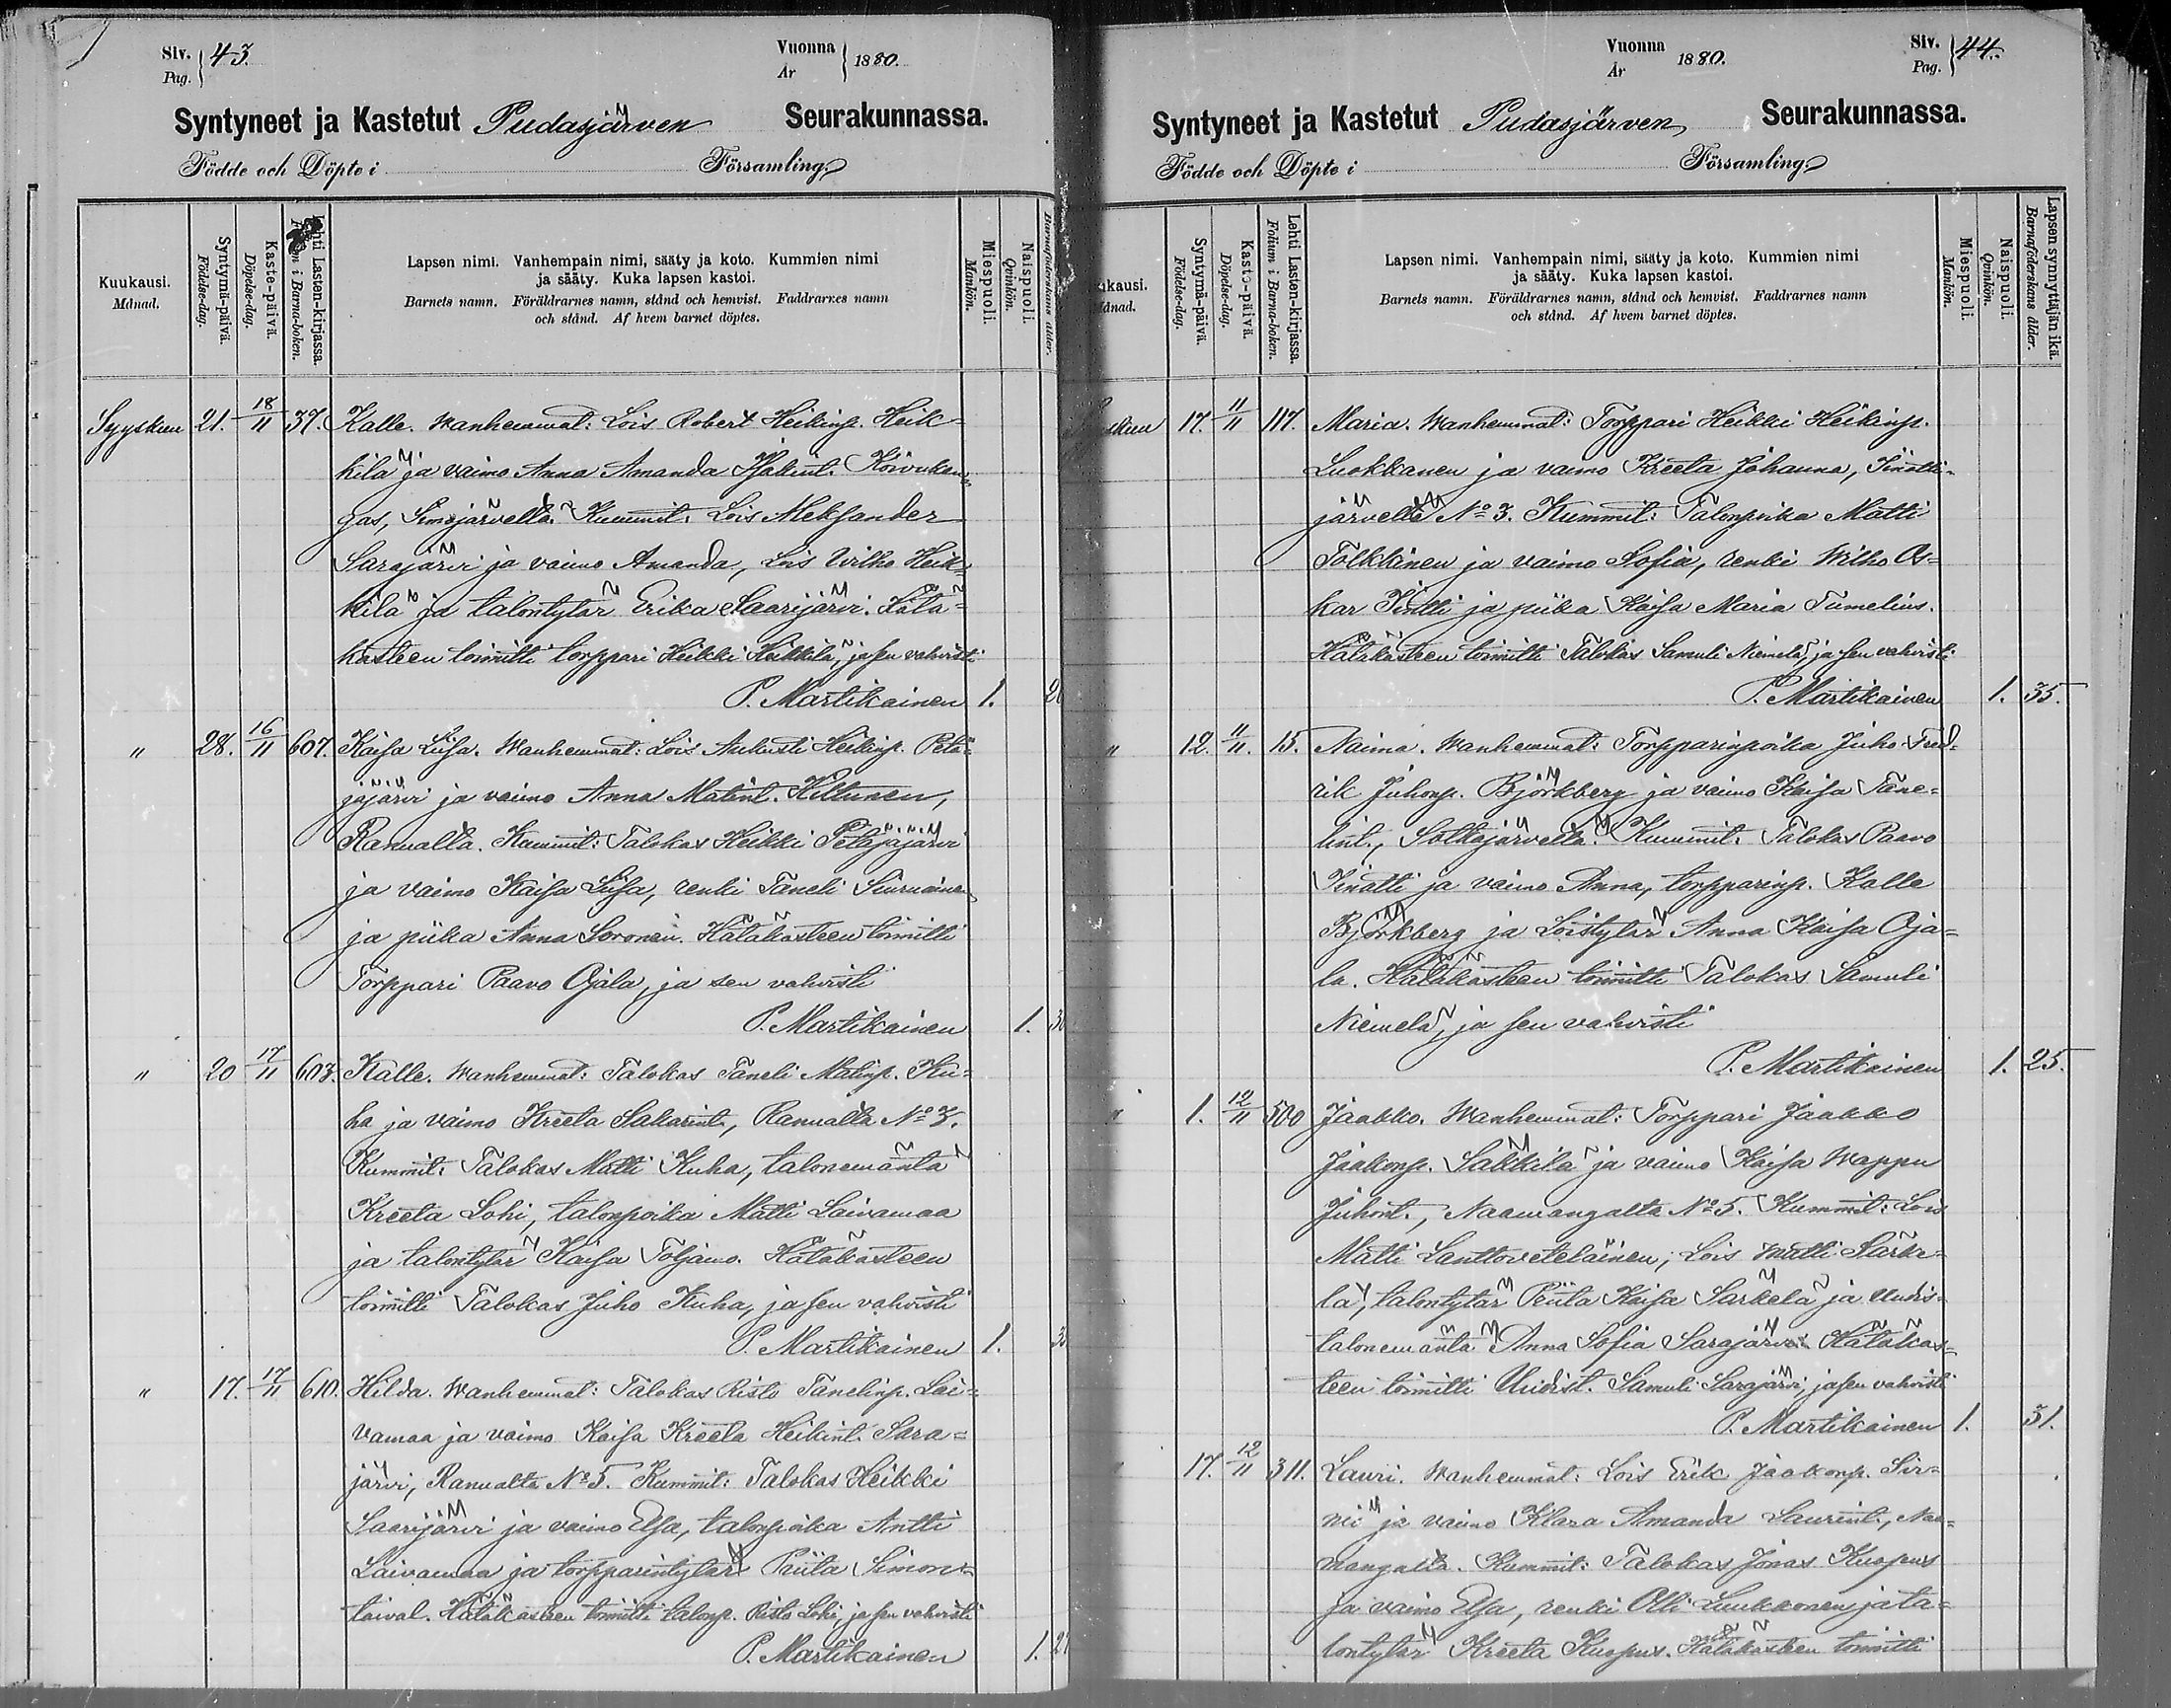 Siv. Pag. 43.
Vuonna År 1880.
Syntyneet ja Kastetut Pudasjärven Seurakunnassa.
Födde och Döpte i Församling.
Kuukausi. Månad.
Syntymä-päivä. Födelse-dag.
Kaste-päivä. Döpelse-dag.
Lehti Lasten-kirjassa. i Barna-boken.
Lapsen nimi. Vanhempain nimi, sääty ja koto. Kummien nimi
ja sääty. Kuka lapsen kastoi.
Barnets namn. Föräldrarnes namn, stånd och hemvist. Faddrarnes namn
och stånd. Af hvem barnet döptes.
Miespuoli. Mankön.
Naispuoli. Qvinkön.
Barnaföderskans ålder.
Syyskuu 21. 18/11 37. Kalle. Wanhemmat: Lois Robert Heikinp. Heik-
kilä ja vaimo Anna Amanda Koivukan-
gas, Simojärveltä. Kummit: Lois Aleksander
Sarajärvi ja vaimo Amanda, Lois Wilho Heik-
kilä ja talontytär Erika Saarijärvi. Hätä-
kasteen toimitti torppari Heikki Heikkilä, ja sen vahvisti
P. Martikainen 1. 2
" 28. 16/11 607. Kaisa Liisa. Wanhemmat: Lois Aukusti Heikinp. Petä-
jäjärvi ja vaimo Anna Matint. Hiltunen,
Ranualta. Kummit: Talokas Heikki Petäjäjärvi
ja vaimo Kaisa Liisa, renki Taneli
ja piika Anna Soronen. Hätäkasteen toimitti
Torppari Paavo Ojala, ja sen vahvisti
P. Martikainen 1. 3
" 20 17/11 603. Kalle. Wanhemmat: Talokas Taneli Matinp. Ku-
ha ja vaimo Kreeta Sakarint., Ranualta No 3.
Kummit: Talokas Matti Kuha, talonemäntä
Kreeta Lohi, talonpoika Matti Laivamaa
ja talontytär Kaisa Toljamo. Hätäkasteen
toimitti Talokas Juho Kuha, ja sen vahvisti
P. Martikainen 1. 3
" 17. 17/11 610. Hilda. Wanhemmat: Talokas Risto Tanelinp. Lai-
vamaa ja vaimo Kaisa Kreeta Heikint. Sara-
järvi, Ranualta No 5. Kummit: Talokas Heikki
Saarijärvi ja vaimo Elsa, talonpoika Antti
Laivamaa ja torpparintytär Priita Simon-
taival. Hätäkasteen toimitti talonp. Risto Lohi, ja sen vahvisti
P. Martikainen 1. 2
Vuonna År 1880.
Siv. Pag. 44.
Syntyneet ja Kastetut Pudasjärven Seurakunnassa.
Födde och Döpte i Församling.
kausi. ånad.
Syntymä-päivä. Födelse-dag.
Kaste-päivä. Döpelse-dag.
Lehti Lasten-kirjassa. Folium i Barna-boken.
Lapsen nimi. Vanhempain nimi, sääty ja koto. Kummien nimi
ja sääty. Kuka lapsen kastoi.
Barnets namn. Föräldrarnes namn, stånd och hemvist. Faddrarnes namn
och stånd. Af hvem barnet döptes.
Miespuoli. Mankön.
Naispuoli. Qvinkön.
Lapsen synnyttäjän ikä. Barnaföderskans ålder.
skuu 17. 11/11 117. Maria. Wanhemmat: Torppari Heikki Heikinp.
Luokkanen ja vaimo Kreeta Johanna, Iinatti-
järveltä No 3. Kummit: Talonpoika Matti
Tolkkinen ja vaimo Sofia, renki Wilho Os-
kar Iinatti ja piika Kaisa Maria Tumelius.
Hätäkasteen toimitti Talokas Samuli Niemelä, ja sen vahvisti
P. Martikainen 1. 35.
" 12. 11/11. 15. Naima. Wanhemmat: Torpparinpoika Juho Fred-
rik Juhonp. Björkberg ja vaimo Kaisa Tane-
lint., Sotkajärveltä. Kummit: Talokas Paavo
Iinatti ja vaimo Anna, torpparinp. Kalle
Björkberg ja Loistytär Anna Kaisa Oja-
la. Hätäkasteen toimitti Talokas Samuli
Niemelä, ja sen vahvisti
P. Martikainen 1. 25.
" 1. 12/11 500 Jaakko. Wanhemmat: Torppari Jaakko
Jaakonp. Särkkilä ja vaimo Kaisa Wappu
Juhont., Naamangalta No 5. Kummit: Lois
Matti Lanttoveteläinen, Lois Matti Särke-
lä, talontytär Priita Kaisa Särkelä ja Uudis-
talonemäntä Anna Sofia Sarajärvi. Hätäkas-
teen toimitti Uudist. Samuli Sarajärvi, ja sen vahvisti
P. Martikainen 1. 31.
" 17. 12/11 311. Lauri. Wanhemmat: Lois Erik Jaakonp. Sir-
niö ja vaimo Klara Amanda Laurint., Naa-
mangalta. Kummit: Talokas Jonas Kuopus
ja vaimo Elsa, renki Olli Luukkonen ja ta-
lontytär Kreeta Kuopus. Hätäkasteen toimitti